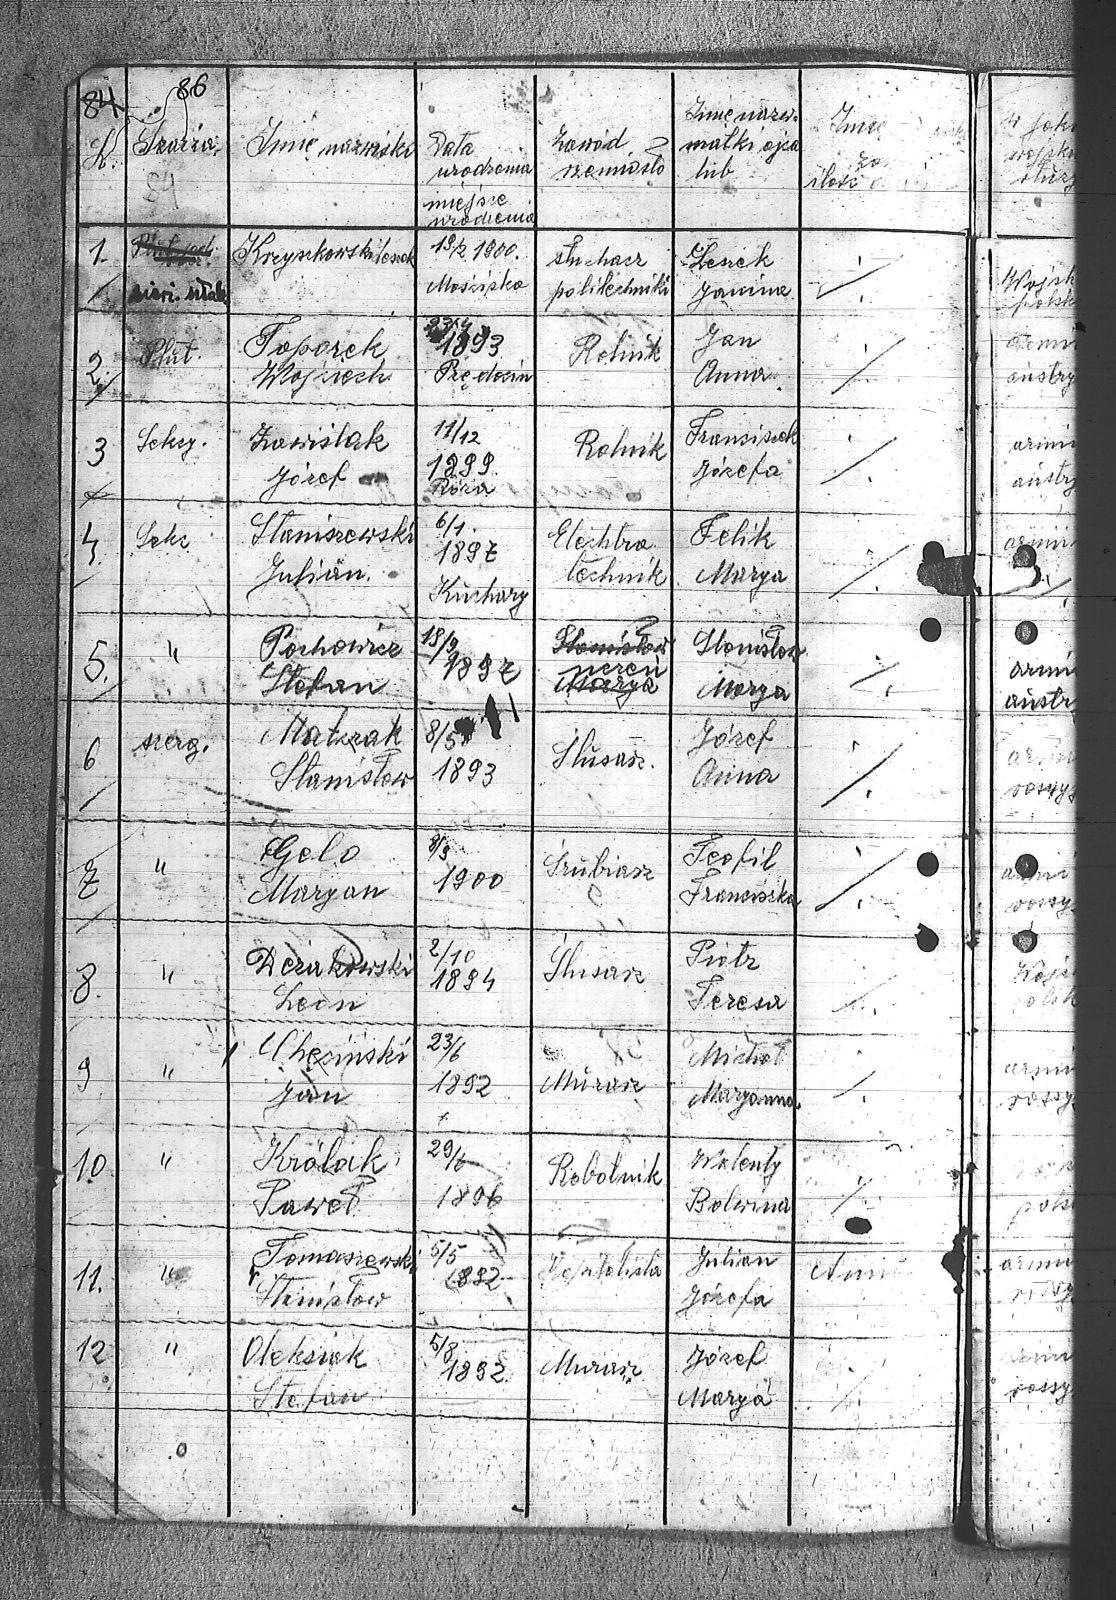 84. 86
L. Szarża. Imię nazwisko Data urodzenia miejsce urodzenia Zawód rzemiosło Imię nazw. matki ojca lub Imię ilość
84
1. Krzyszkowski Leszek 19/2 1900. Mościska słuchacz politechniki Leszek Janina Wojsk polsk
2. Plut. Toporek Wojciech 1893 Rolnik Jan Anna armii austry
3 Sekcy. Zawiślak Józef 11/12 1899. Róża Rolnik Franciszek Józefa armii austry
4. Sekc Staniszewski Julian. 6/1. 1897 Kuchary Elechtro technik Felik Marya armii
5. " Pochowicz Stefan 18/9 1897 Stanisław Marya armi austr
6 szerg. Matczak Stanisław 8/5 1893 Slusarz. Józef Anna armi rossyj
7 " Gelo Maryan 8/3 1900 Teofil Franciszka armi rossy
8. " Leon 2/10 1894 Slusarz Piotr Teresa Wojs polsk
9 " Chęciński Jan 23/6 1892 Murarz Michał Maryanna. armi rossy
10. " Królak Paweł 29/6 1896 Robotnik Walenty Balwina pols
11. " Tomaszewski Stanisław 5/5 1892 Julian Józefa armi
12 " Oleksiak Stefan 5/8 1892. Murarz. Józef Marya rossy